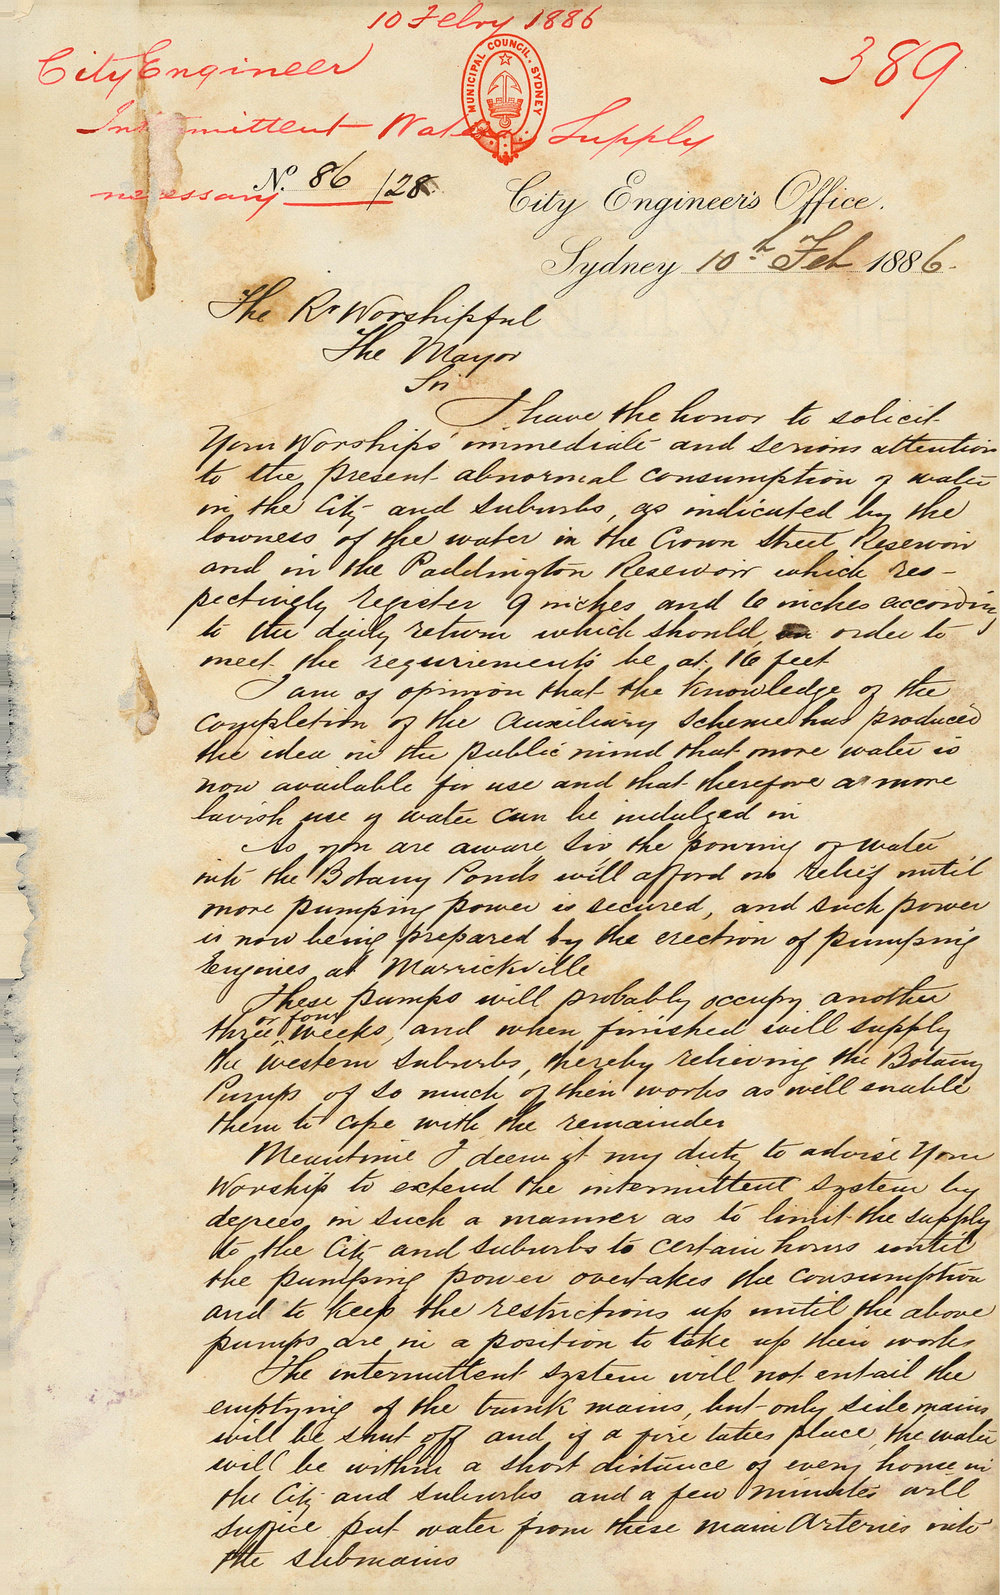 10 Febry 1886
City Engineer
389
MUNICIPAL COUNCIL. SYDNEY
Intermittent Water Supply
necessary
No. 86/28
City Engineer's Office.
Sydney 10th Feb 1886.
The Rt Worshipful
The Mayor
Sir
I have the honor to solicit
Your Worships' immediate and serious attention
to the present abnormal consumption of water
in the City and suburbs, as indicated by the
lowness of the water in the Crown Street Reservoir
and in the Paddington Reservoir which res-
pectively register 9 inches and 6 inches according
to the daily return which should, in order to
meet the requirements be at 16 feet
I am of opinion that the knowledge of the
completion of the Auxiliary scheme has produced
the idea in the public mind that more water is
now available for use and that therefore a more
lavish use of water can be indulged in
As you are aware Sir the pouring of water
into the Botany Ponds will afford no relief until
more pumping power is secured, and such power
is now being prepared by the erection of pumping
Engines at Marrickville
These pumps will probably occupy another
three or four weeks, and when finished will supply
the western suburbs, thereby relieving the Botany
Pumps of so much of their works as will enable
them to cope with the remainder
Meantime I deem it my duty to advise Your
Worship to extend the intermittent system by
degrees in such a manner as to limit the supply
to the City and suburbs to certain hours until
the pumping power overtakes the consumption
and to keep the restrictions up until the above
pumps are in a position to take up their works
The intermittent system will not entail the
emptying of the trunk mains, but only side mains
will be shut off and if a fire takes place, the water
will be within a short distance of every home in
the City and suburbs and a few minutes will
suffice put water from these main Arteries into
the submains